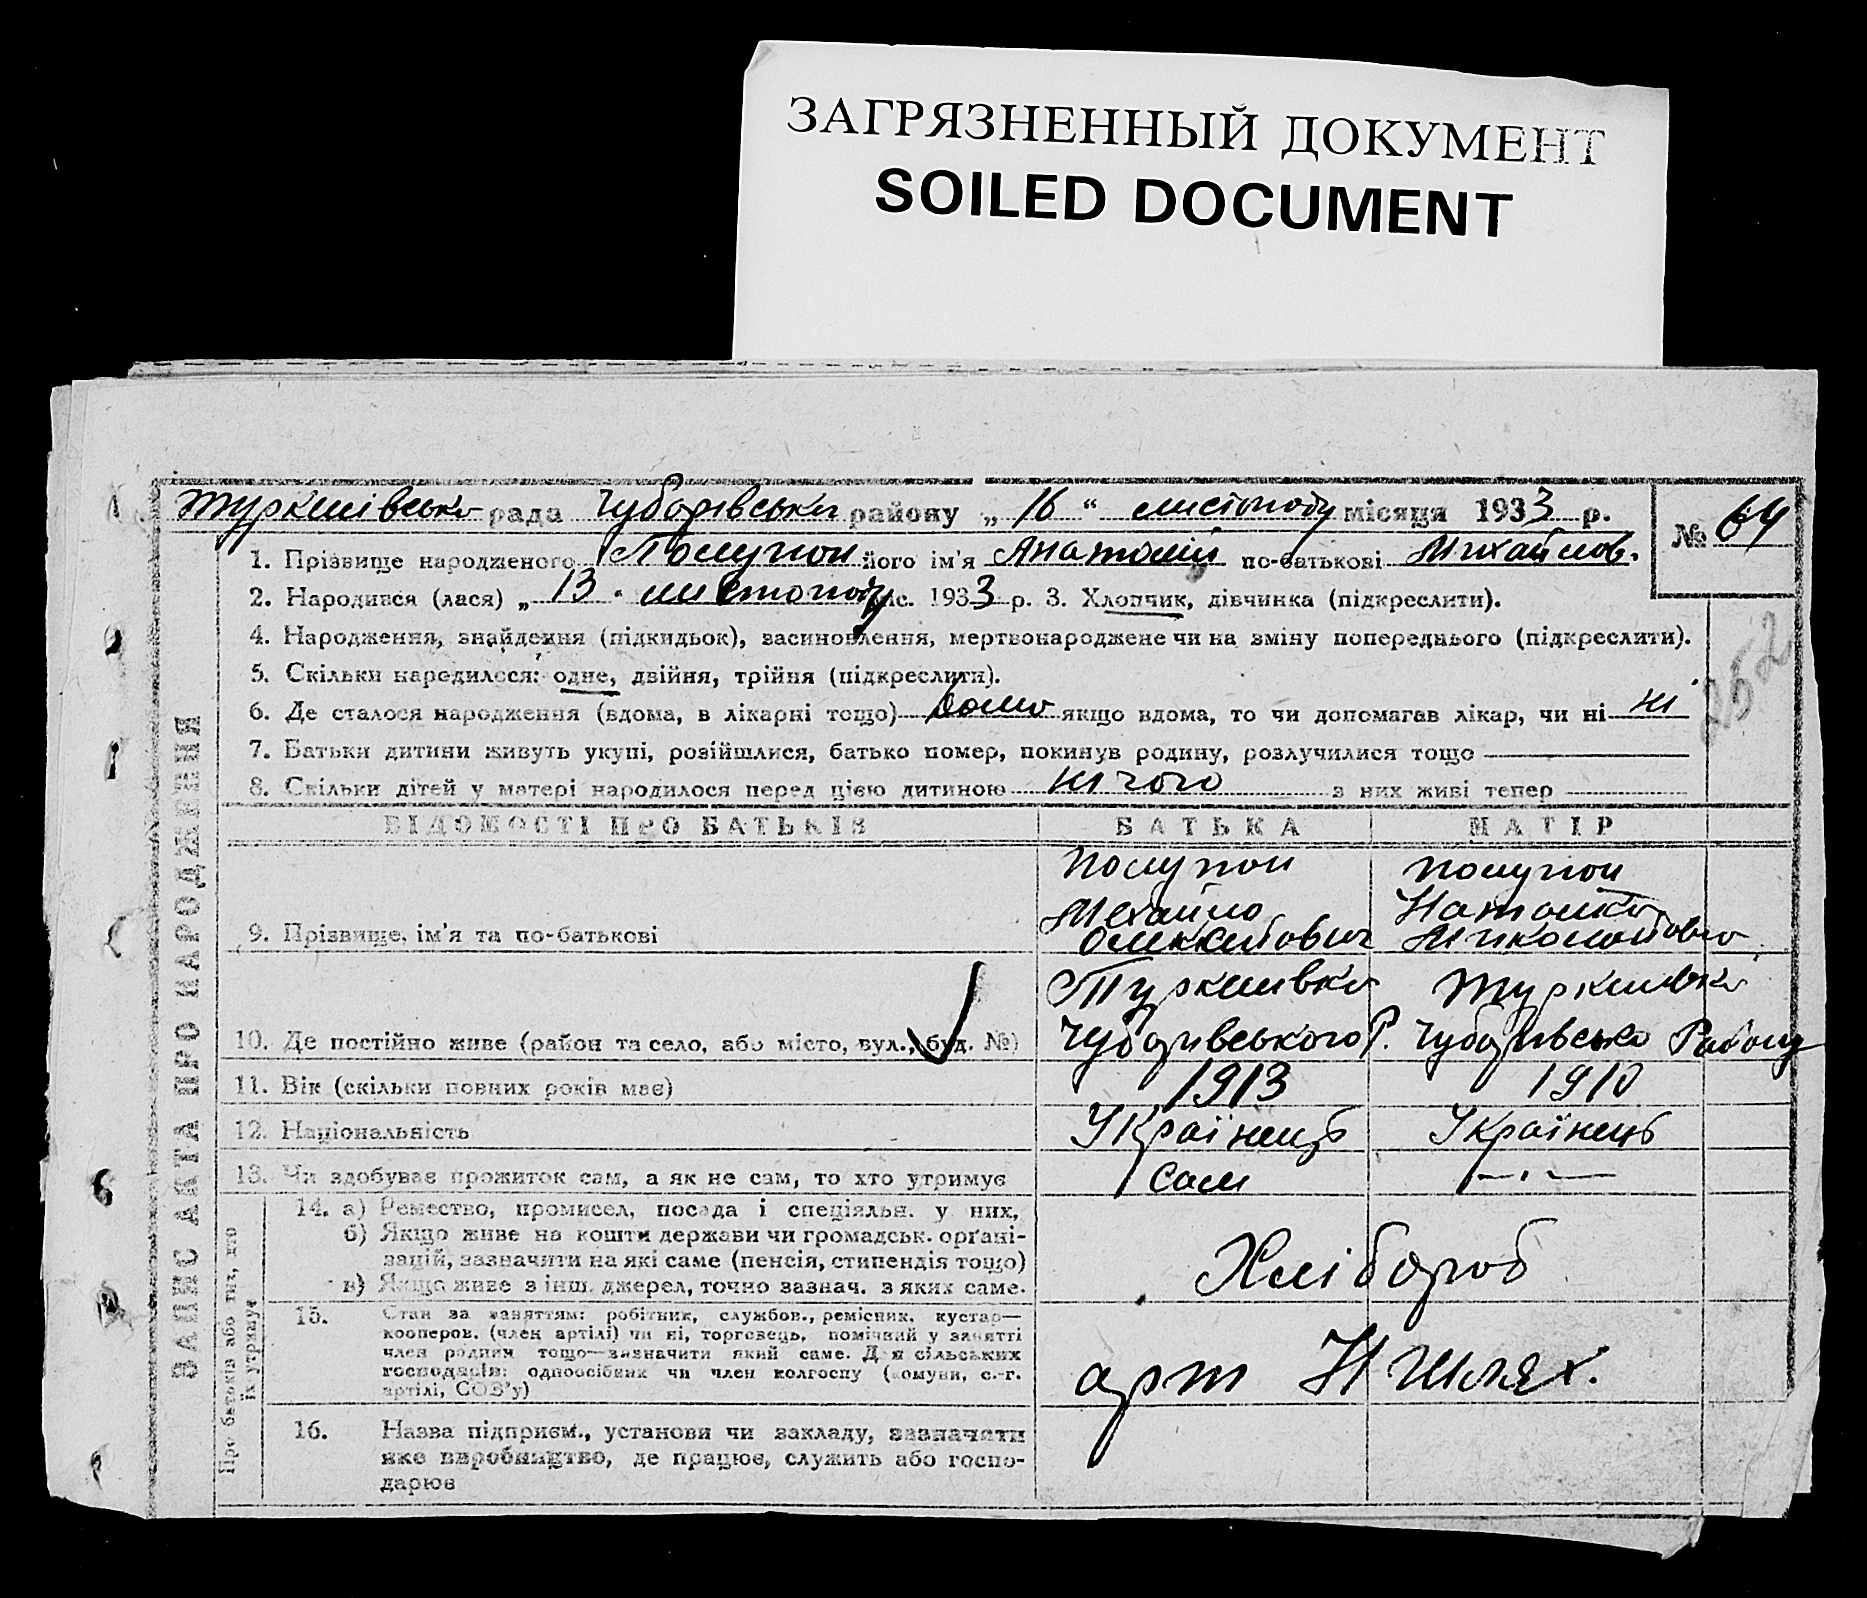 ЗАГРЯЗНЕННЫЙ ДОКУМЕНТ
SOILED DOCUMENT
Туркенівська рада Чубарівська району „ 16 “ листопаду місяця 1933 р.
№ 64
1. Прізвище народженого Полупон його ім'я Анатолій по-батькові Михайлов.
2. Народився (лася) „ 13 " листопаду міс. 1933 р. 3. Хлопчик, дівчинка (підкреслити).
4. Народження, знайдення (підкидьок), засиновлення, мертвонароджене чи на зміну попереднього (підкреслити).
5. Скільки народилося: одне, двійня, трійня (підкреслити).
6. Де сталося народження (вдома, в лікарні тощо) дома якщо вдома, то чи допомагав лікар, чи ні ні
7. Батьки дитини живуть укупі, розійшлися, батько помер, покинув родину, розлучилися тощо
8. Скільки дітей у матері народилося перед цією дитиною нічого з них живі тепер
252
ЗАПИС АКТА ПРО НАРОДЖЕННЯ
ВІДОМОСТІ ПРО БАТЬКІВ БАТЬКА МАТІР
9. Прізвище, ім'я та по-батькові
Полупон
Михайло
Полупон
Наталка
Миколаївна
10. Де постійно живе (район та село, або місто, вул., буд. №)
Туркенівка
Чубарівського Р.
Туркенівка
Чубарівська Району
11. Вік (скільки повних років має) 1913 1910
12. Національність Українець Українець
13. Чи здобуває прожиток сам, а як не сам, то хто утримує сам —·—
Про батьків або тих, хто
їх утримує
14. а) Ремество, промисел, посада і спеціяльн. у них,
б) Якщо живе на кошти держави чи громадськ. орґані-
зацій, зазначити на які саме (пенсія, стипендія тощо)
в) Якщо живе з інш. джерел, точно зазнач. з яких саме.
Хлібороб
15. Стан за заняттям: робітник, службов., ремісник, кустар—
кооперов. (член артілі) чи ні, торговець, помічний у занятті
член родини тощо—зазначити який саме. Для сільських
господарів: одноосібник чи член колгоспу (комуни, с.-г.
артілі, СОЗ'у)
арт Н Шлях.
16. Назва підприєм., установи чи закладу, зазначити
яке виробництво, де працює, служить або госпо-
дарює